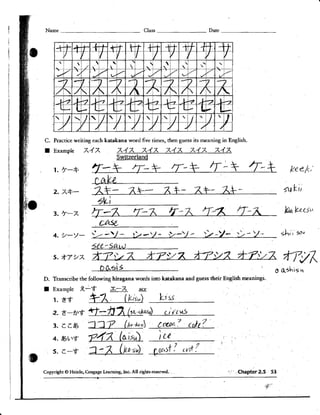 Name Class Date
サ サ サ サ サ サ サ サ サ
シ シ シ シ シ シ シ シ シ
ス ス ス ス ス ス ス ス ス
セ セ セ セ セ セ セ セ セ
ソ ソ ソ ソ ソ ソ ソ ソ ソ
C. Practice writing each katakana word five times, then guess its meaning in English.
■ Example スイス スイス スイス スイス スイス スイス
Switzerland
1. ケーキ ケーキ ケーキ ケーキ ケーキ ケーキ keeki
cake
2. スキー スキー スキー スキー スキー スキー sukii
ski
3. ケース ケース ケース ケース ケース ケース keesu
case
4. シーソー シーソー シーソー シーソー シーソー シーソー shii soo
see-saw
5. オアシス オアシス オアシス オアシス オアシス オアシス
oasis oashisu
D. Transcribe the following hiragana words into katakana and guess their English meanings.
■ Example えーす エース ace
1. きす キス (kisu) kiss
2. さーかす サーカス (saakasu) circus
3. ここあ ココア cocoa?
4. あいす アイス (aisu) ice
5. こーす コース coast?
Copyright © Heinle, Cengage Learning, Inc. All rights reserved. Chapter 2.5 53